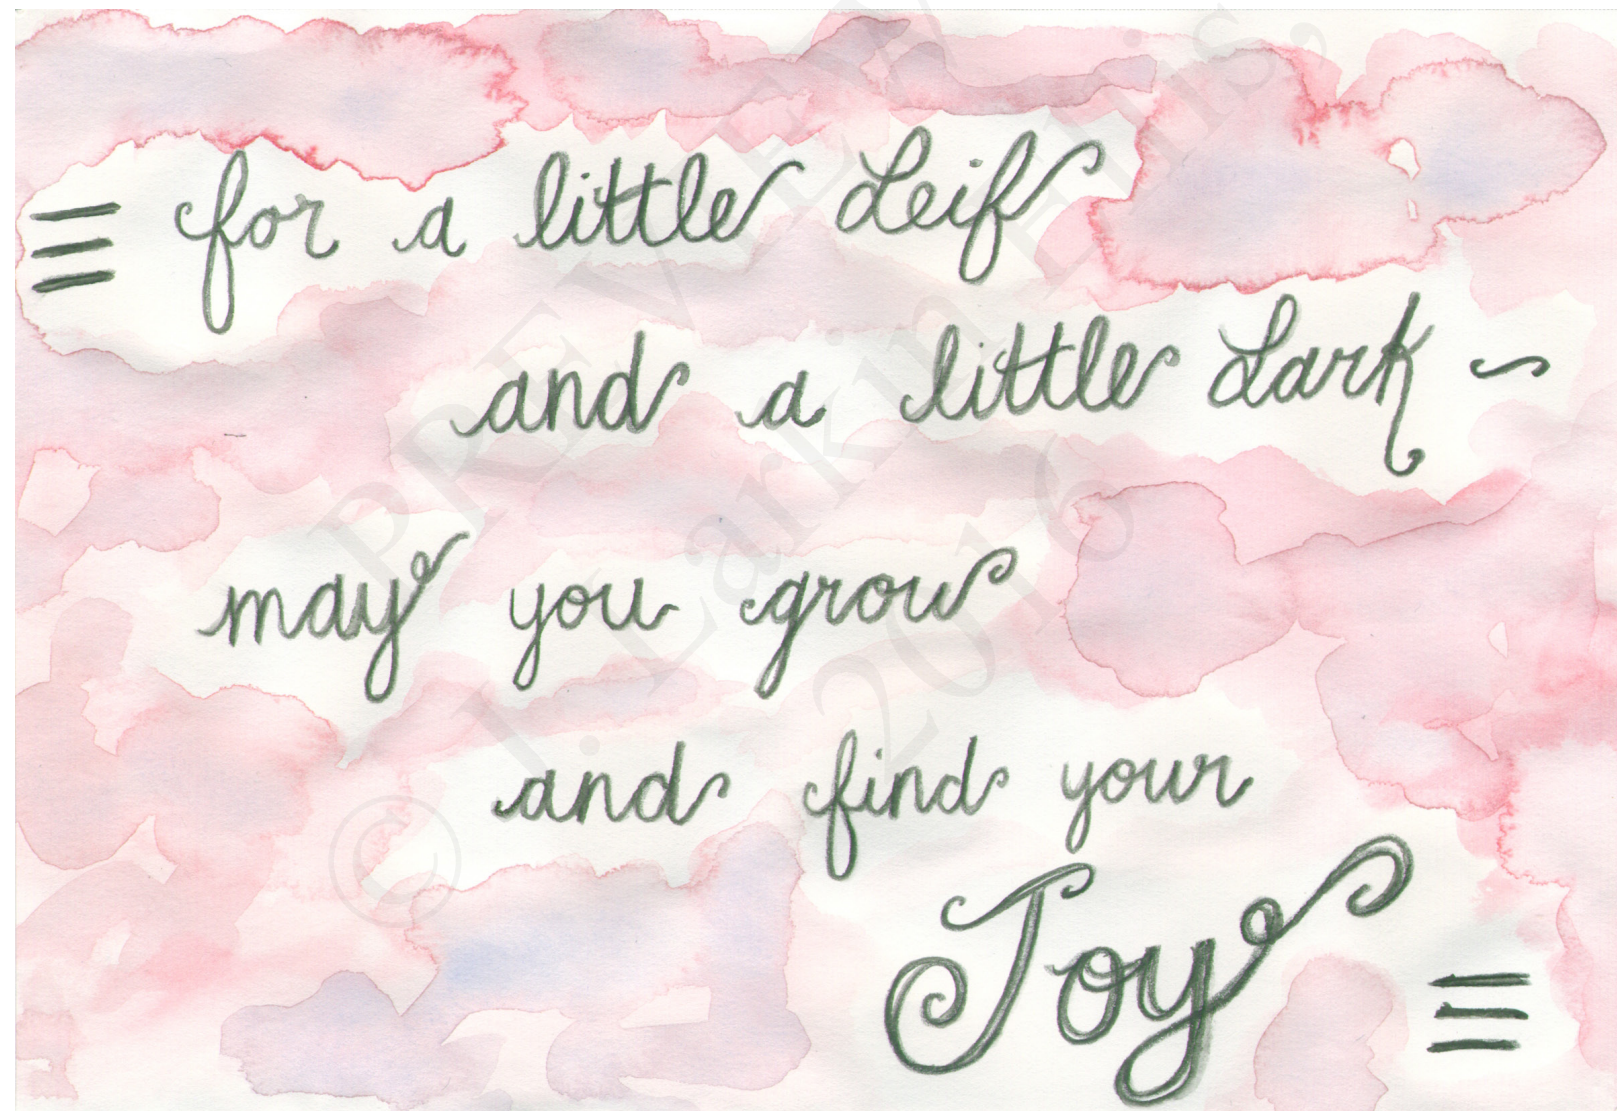 for a little Leif
and a little Lark ~
may you grow
and find your
Joy
PREVIEW
© J. Larkin Ellis,
2016